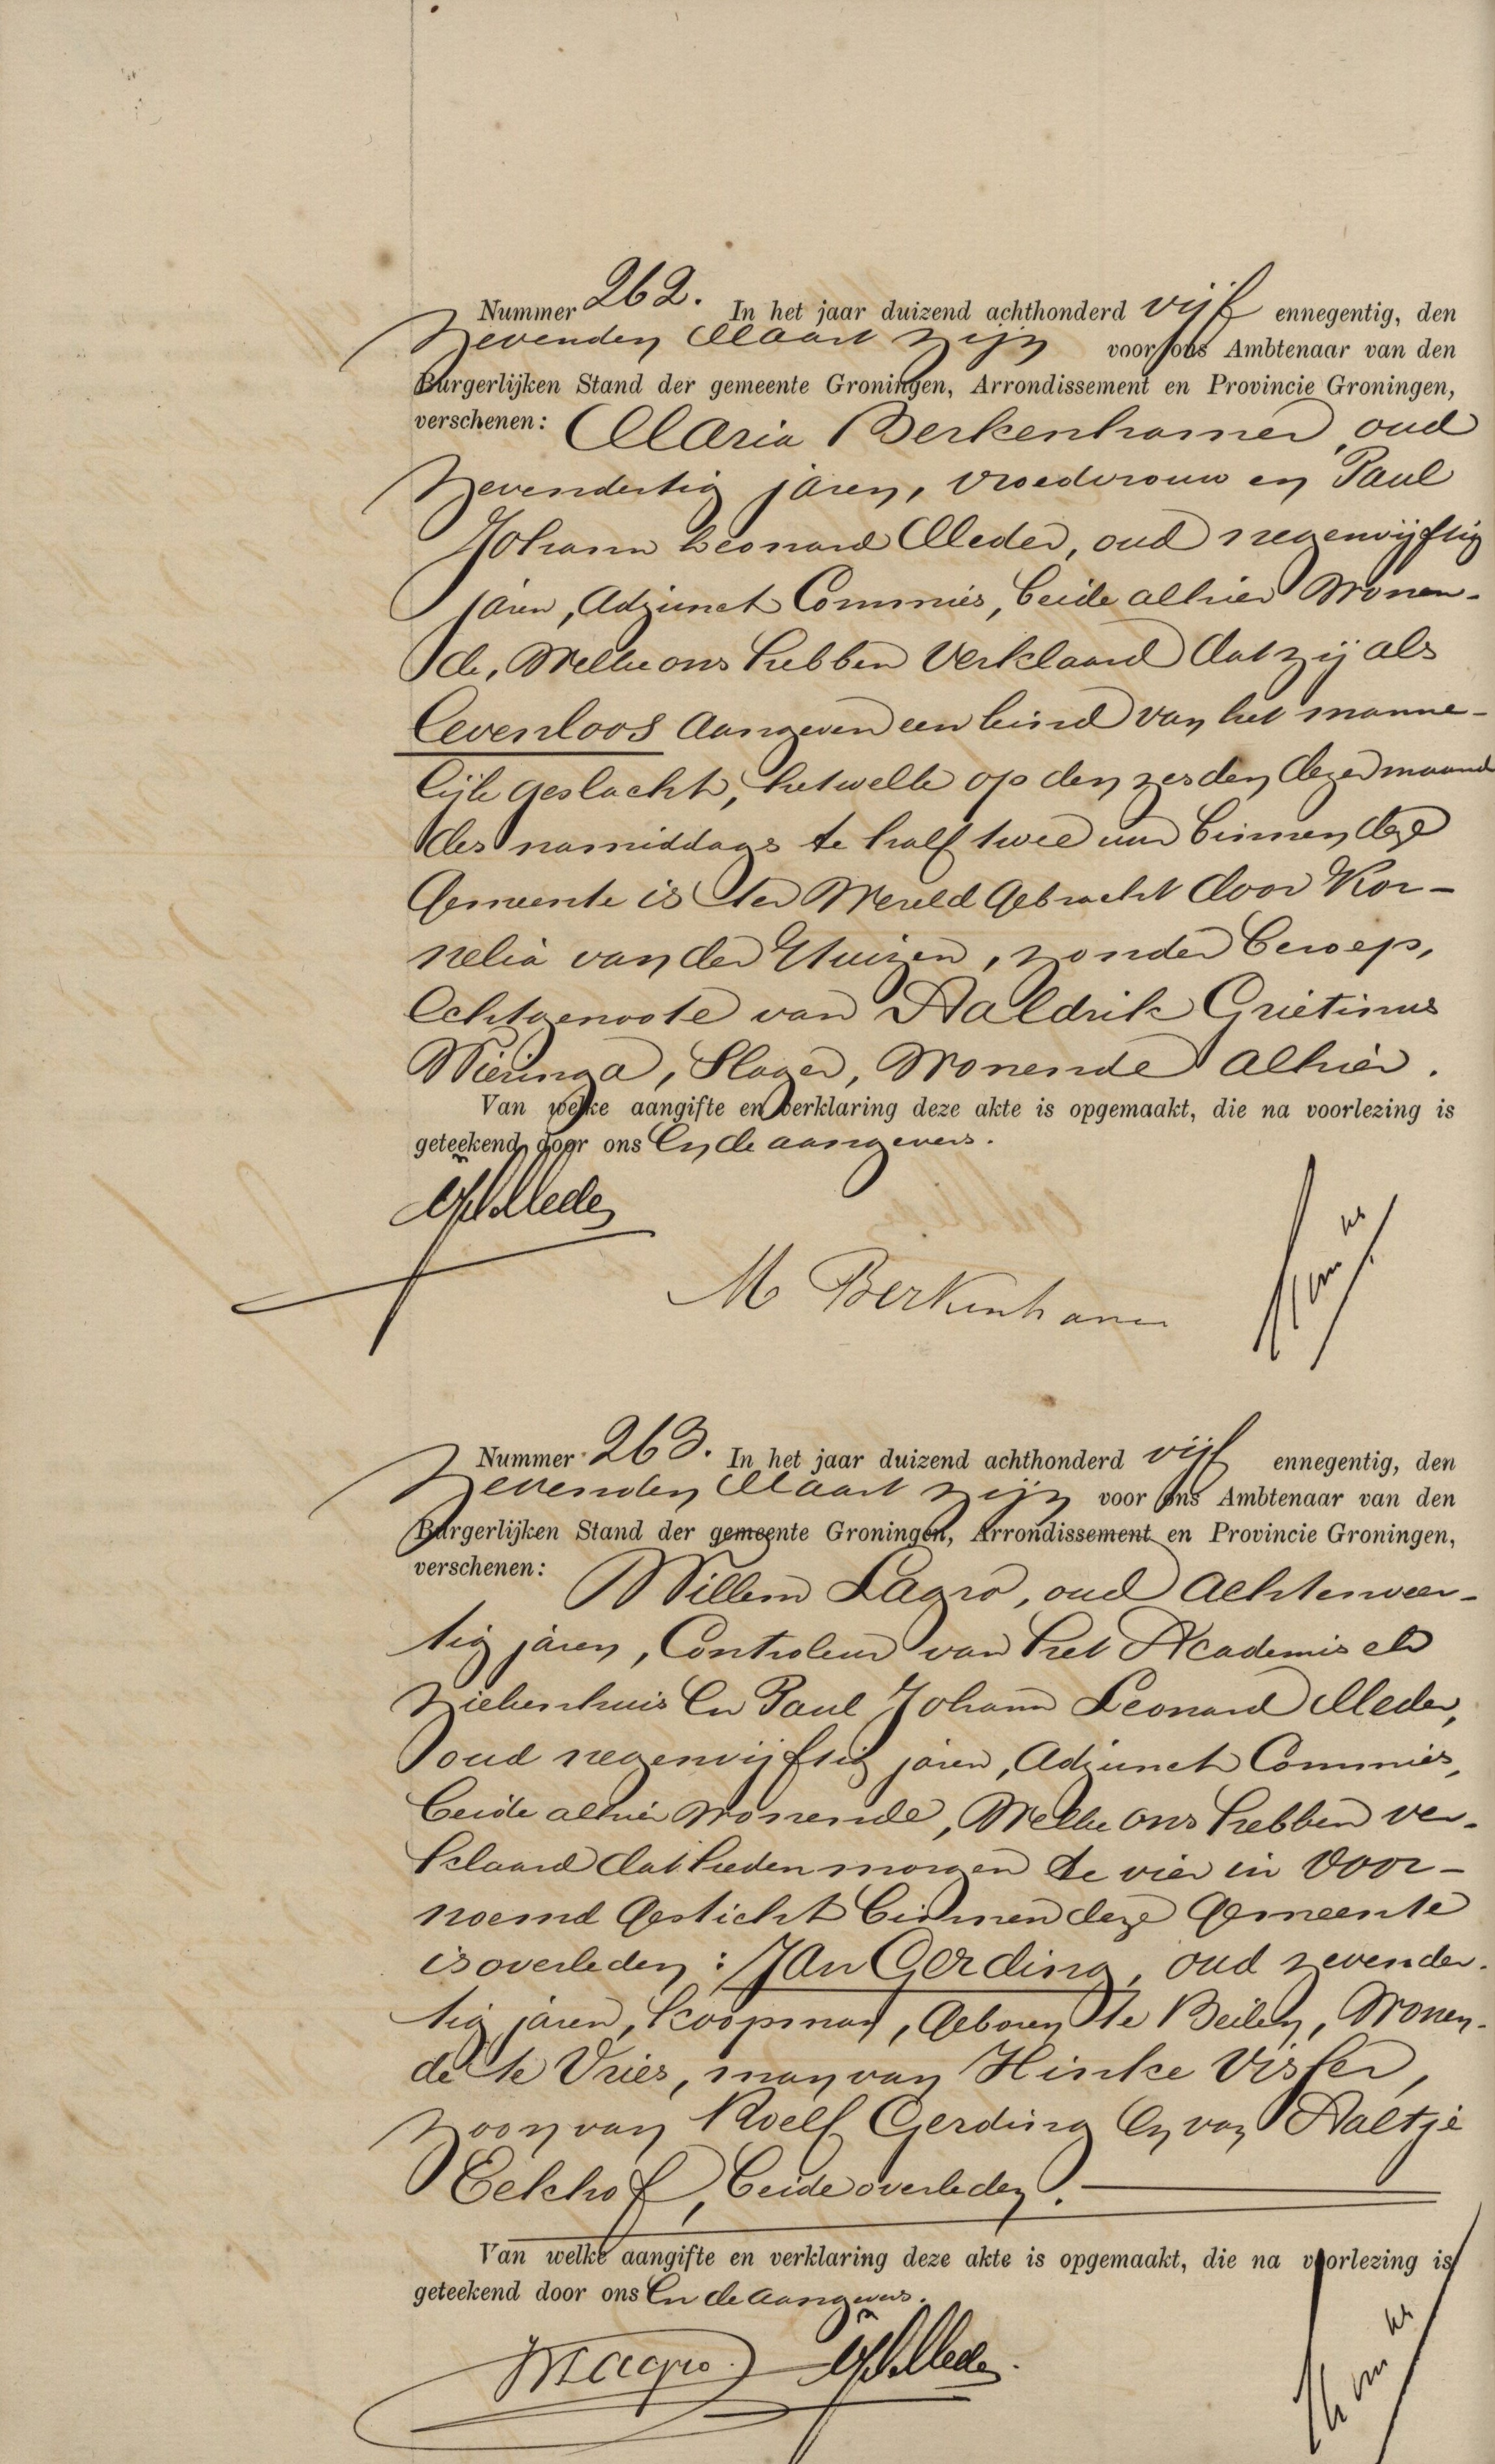 Nummer 262. In het jaar duizend achthonderd vijf ennegentig, den
zevenden Maart zijn voor ons Ambtenaar van den
Burgerlijken Stand der gemeente Groningen, Arrondissement en Provincie Groningen,
verschenen: Maria Berkenhamer, oud
zevendertig jaren, vroedvrouw en Paul
Johann Leonard Meder, oud negenvijftig
jaren, Adjunct Commies, beide alhier wonen-
de, Welke ons hebben verklaard dat zij als
levenloos aangeven een kind van het manne-
lijk geslacht, hetwelk op den zesden dezer maand
des namiddags te half twee uur binnen deze
Gemeente is ter Wereld gebracht door Kor-
nelia van der Huizen, zonder beroep,
Echtgenoote van Aaldrik Grietinus
Wieringa, Slager, Wonende alhier.
Van welke aangifte en verklaring deze akte is opgemaakt, die na voorlezing is
geteekend door ons en de aangevers.
Meder
M Berkenhamer
Nummer 263. In het jaar duizend achthonderd vijf ennegentig, den
zevenden Maart zijn voor ons Ambtenaar van den
Burgerlijken Stand der gemeente Groningen, Arrondissement en Provincie Groningen,
verschenen: Willem Lagro, oud achtenveer-
tig jaren, Controleur van het Academisch
Ziekenhuis en Paul Johann Leonard Meder,
oud negenvijftig jaren, Adjunct Commies,
beide alhier wonende, Welke ons hebben ver-
klaard dat heden morgen te vier in voor-
noemd Gesticht binnen deze Gemeente
is overleden: Jan Gerding, oud zevender-
tig jaren, koopman, geboren te Beilen, Wonen-
de te Vries, man van Hinke Visser,
zoon van Roelf Gerding en van Aaltje
Eekhof, beide overleden.
Van welke aangifte en verklaring deze akte is opgemaakt, die na voorlezing is
geteekend door ons en de aangevers.
WLagro. Meder.